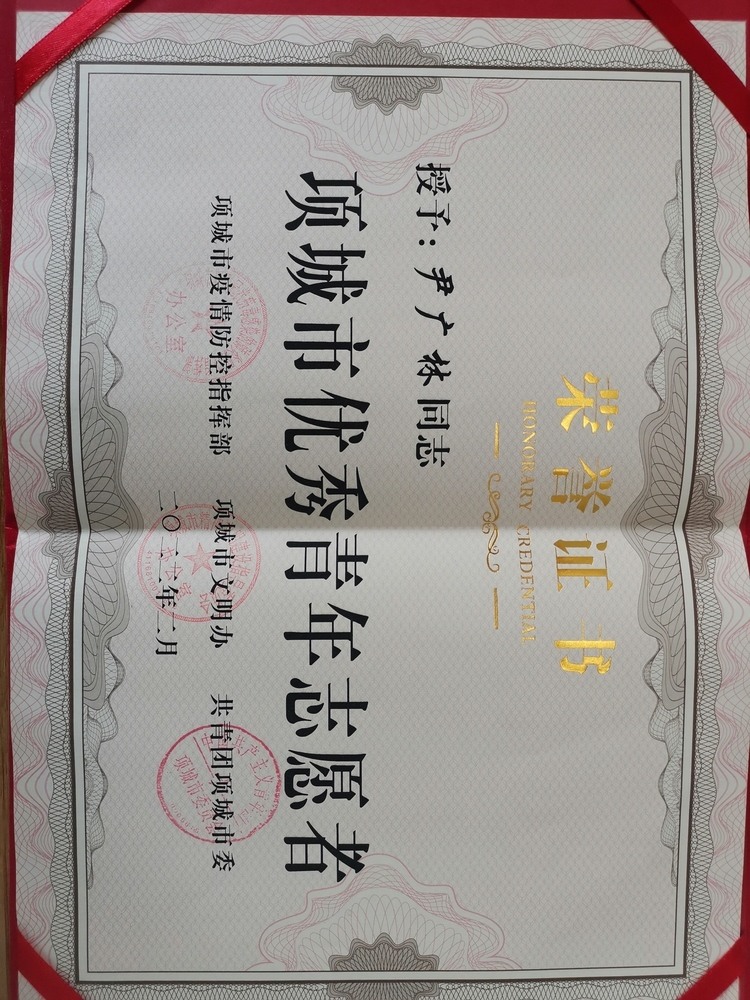 荣誉证书
HONORARY CREDENTIAL
授予：尹广林同志
项城市优秀青年志愿者
项城市疫情防控指挥部 项城市文明办 共青团项城市委
办公室
项城市委员会
年二月